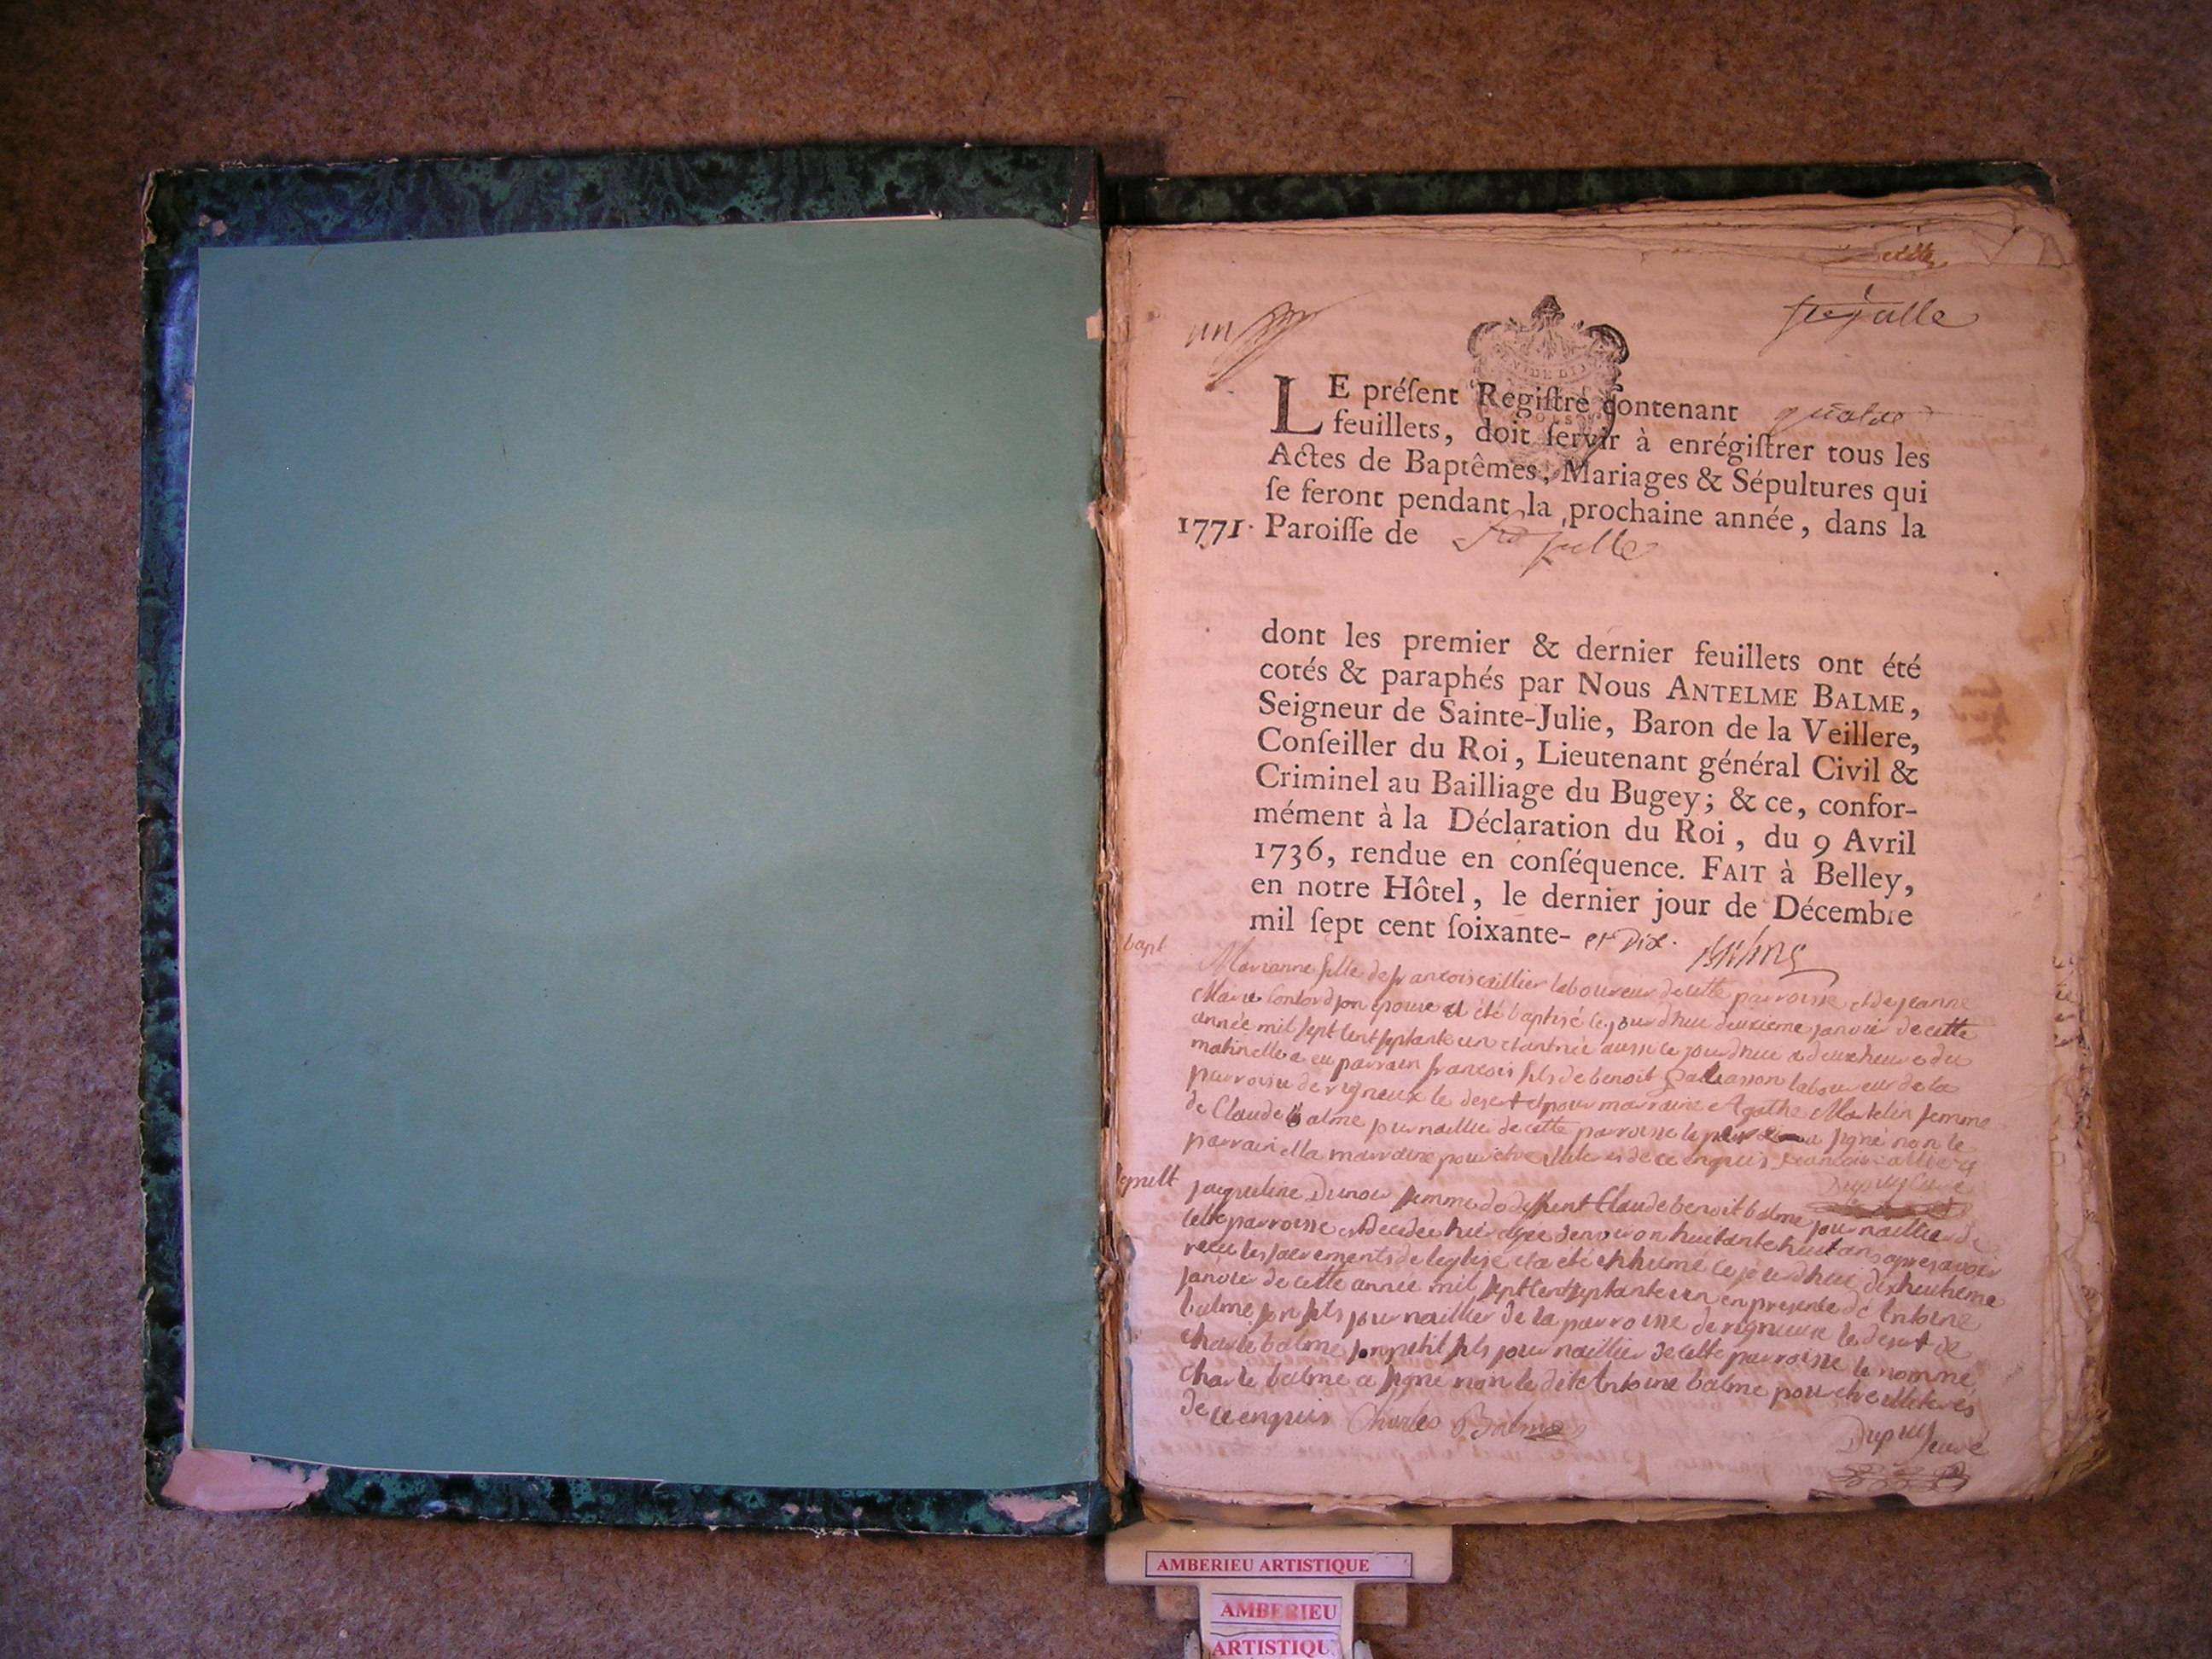 un
ste julle
LE préſent Regiſtre contenant quatre
feuillets, doit ſervir à enrégiſtrer tous les
Actes de Baptêmes, Mariages & Sépultures qui
ſe feront pendant la prochaine année, dans la
1771. Paroiſſe de Ste julle
dont les premier & dernier feuillets ont été
cotés & paraphés par Nous ANTELME BALME,
Seigneur de Sainte-Julie, Baron de la Veillere,
Conſeiller du Roi, Lieutenant général Civil &
Criminel au Bailliage du Bugey; & ce, confor-
mément à la Déclaration du Roi, du 9 Avril
1736, rendue en conſéquence. FAIT à Belley,
en notre Hôtel, le dernier jour de Décembre
mil ſept cent ſoixante- et Dix. Balme
bapt
Marianne fille de francois caillier laboureur de cette parroisse et de jeanne
Marie son epouse a été baptisé ce jourdhui deuxieme janvié de cette
année mil sept cent septante un et antnée aussi ce jourdhui a deux heures du
matin elle a eu parrain francois fils de benoit laboureur de la
parroisse de rigneux le desert et pour marraine Agathe Martelin femme
de Claude balme journaillier de cette parroisse le a signé non le
parrain et la marraine pour etre de ce enquis
Dupuy Curé
sepult
jacqueline Dunoir femme de deffunt Claude benoit balme journaillier de
cette parroisse est decedée hier agée denviron huitante huit ans apres avoir
recu les sacrements de leglise et a été enhumé ce jourdhui dixhuitieme
janvié de cette année mil sept cent septante un en presence de Antoine
balme son fils journaillier de la parroisse de rigneux le desert et de
charle balme son petit fils journaillier de cette parroisse le nommé
Charle balme a signé non le dit Antoine balme pour etre illiterés
de ce enquis Charles Balme
Dupuy Curé
AMBERIEU ARTISTIQUE
AMBERIEU
ARTISTIQU